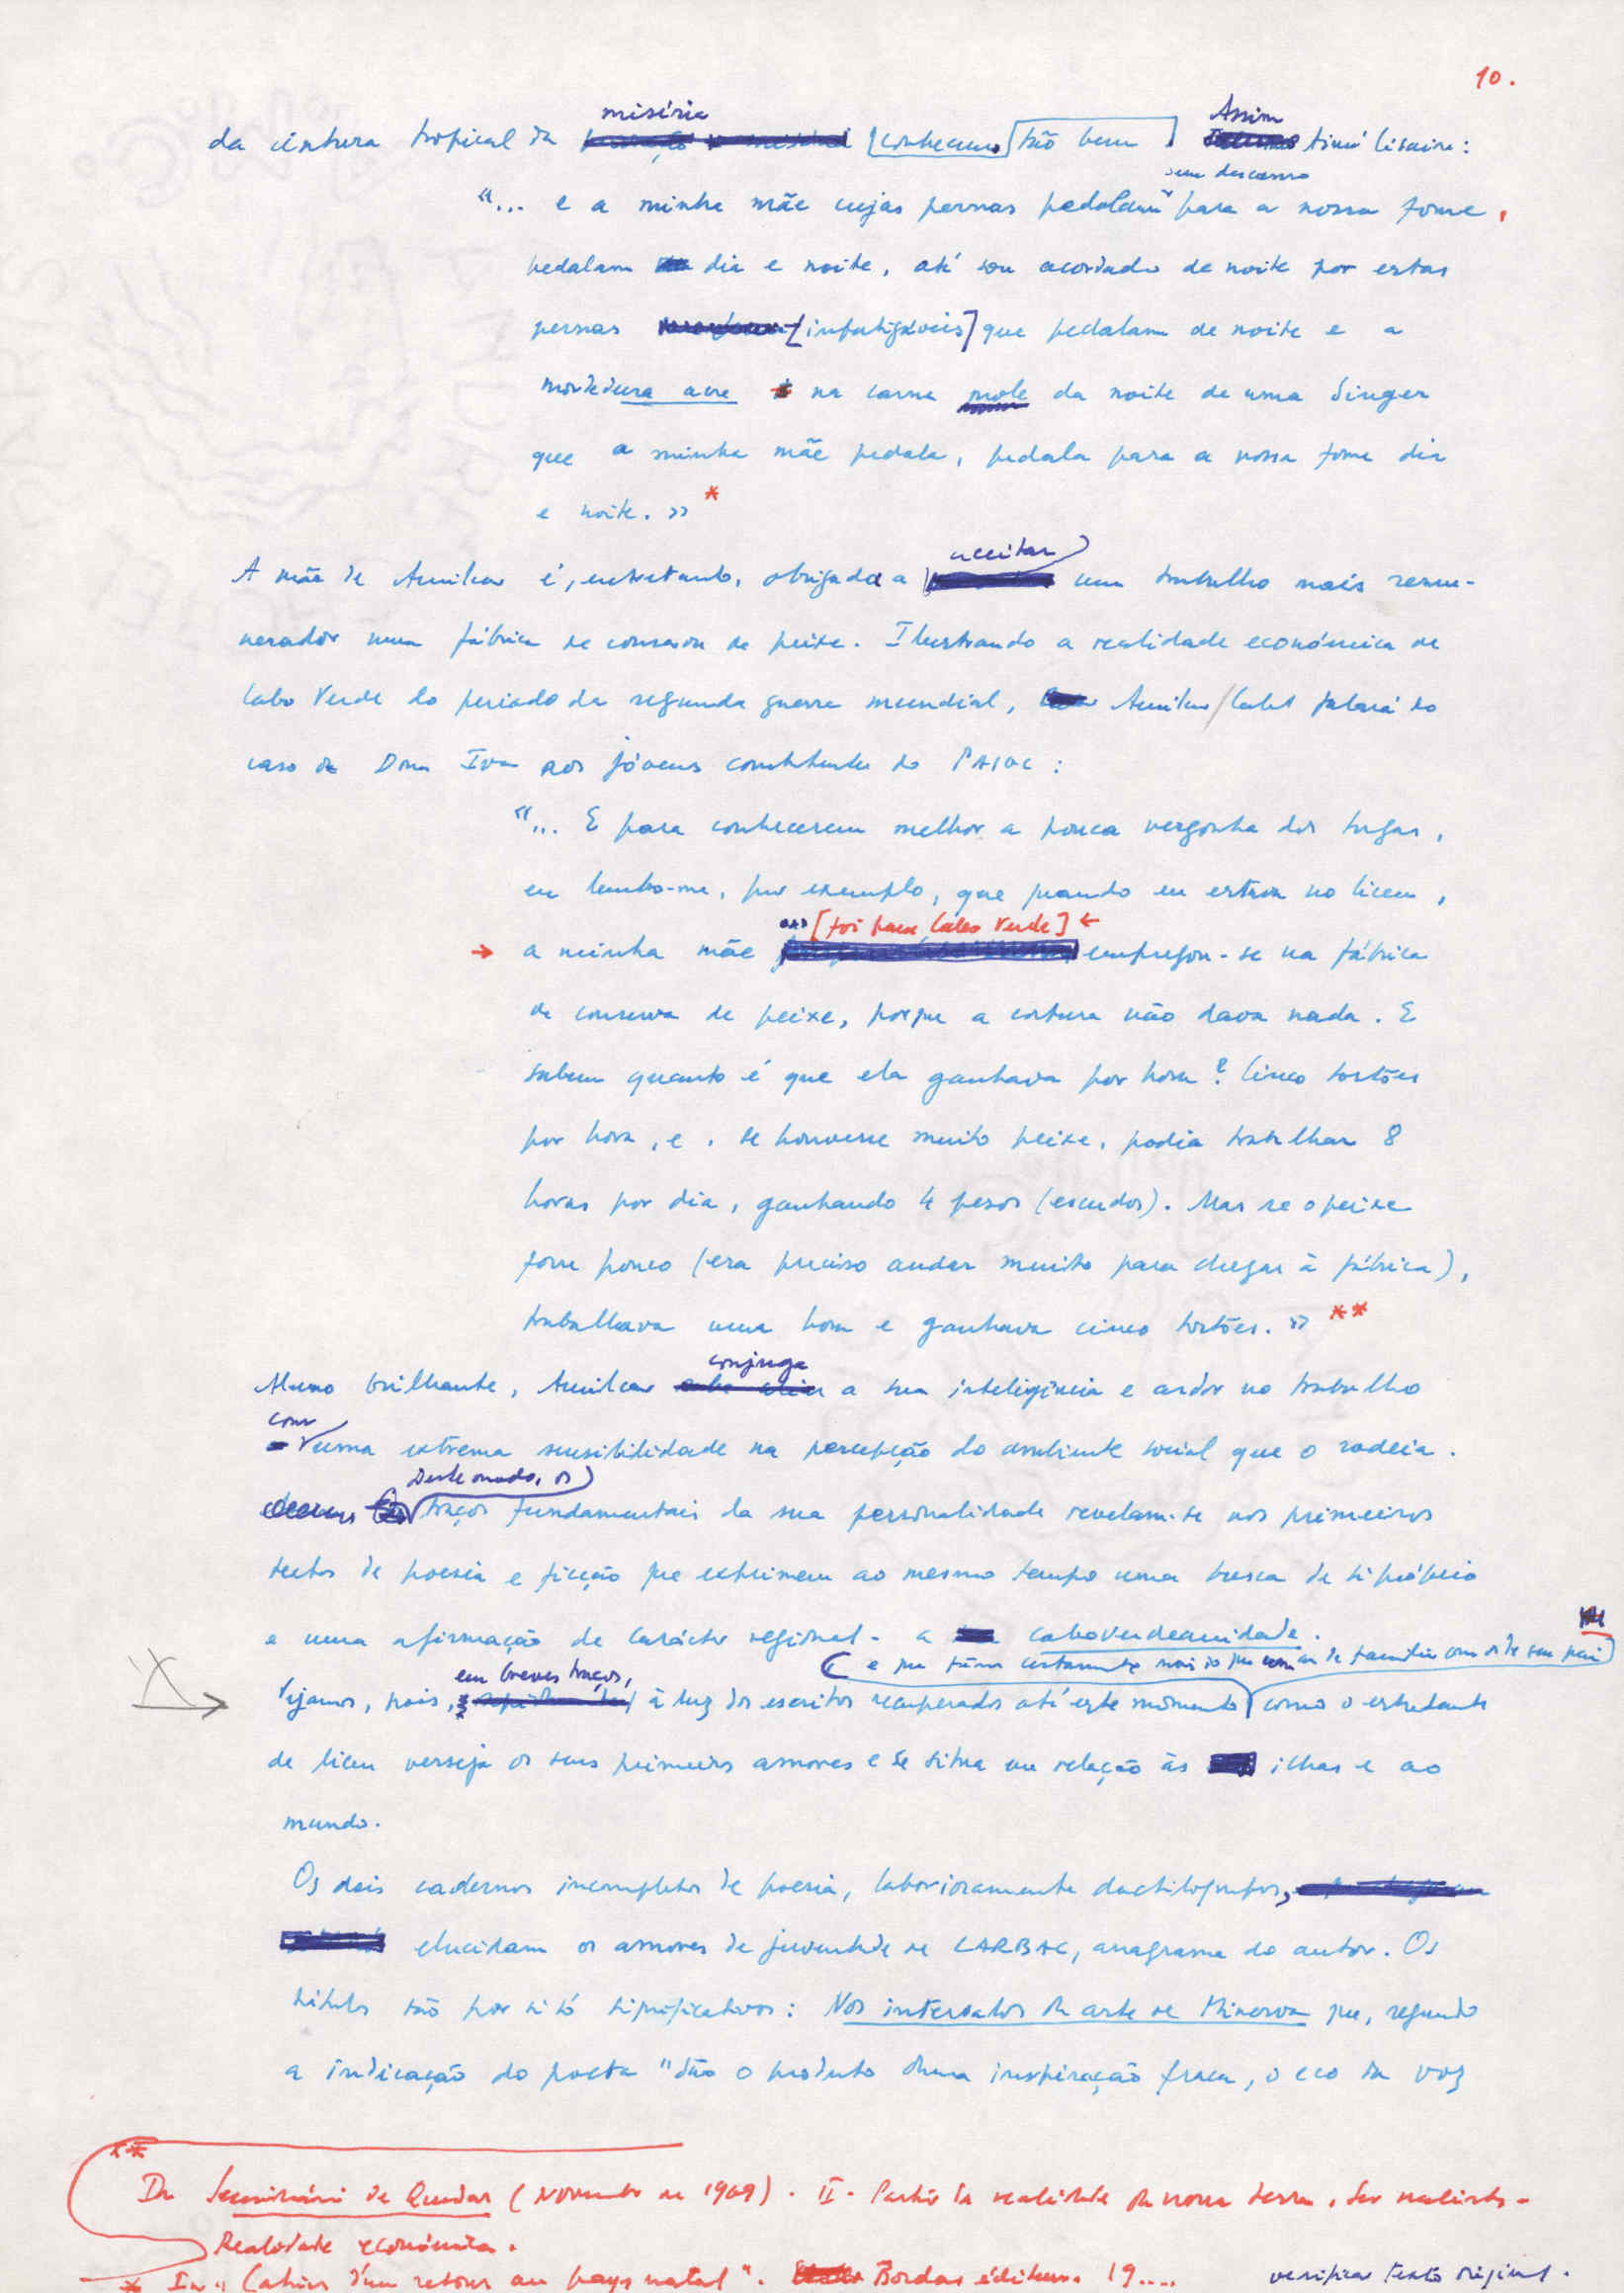 10.
miséria Assim
da cintura tropical da [conhecemos] tão bem Aimé Césaire:
sem descanso
"... e a minha mãe cujas pernas pedalam para a nossa fome,
pedalam dia e noite, até sou acordado de noite por estas
pernas [infatigáveis] que pedalam de noite e a
mordedura acre na carne mole da noite de uma Singer
que a minha mãe pedala, pedala para a nossa fome dia
e noite. » *
aceitar
A mãe de Amilcar é, entretanto, obrigada a um trabalho mais remu-
nerador numa fábrica de conserva de peixe. Ilustrando a realidade económica de
Cabo Verde do período da segunda guerra mundial, Amilcar Cabral falará do
caso de Dona Iva aos jóvens combatentes do PAIGC :
"... E para conhecerem melhor a pouca vergonha dos tugas,
eu lembro-me, por exemplo, que quando eu estava no liceu,
... [foi para Cabo Verde] ←
→ a minha mãe empregou-se na fábrica
de conserva de peixe, porque a costura não dava nada. E
sabem quanto é que ela ganhava por hora ? Cinco tostões
por hora, e, se houvesse muito peixe, podia trabalhar 8
horas por dia, ganhando 4 pesos (escudos). Mas se o peixe
fosse pouco (era preciso andar muito para chegar à fábrica),
trabalhava uma hora e ganhava cinco tostões. » **
conjuga
Aluno brilhante, Amilcar a sua inteligência e ardor no trabalho
com
uma extrema sensibilidade na percepção do ambiente social que o rodeia.
Deste modo, os
traços fundamentais da sua personalidade revelam-se nos primeiros
textos de poesia e ficção que exprimem ao mesmo tempo uma busca de si próprio
e uma afirmação de carácter regional - a caboverdeanidade.
e que têm certamente mais do que um ar de família com os de seu pai
em breves traços,
Vejamos, pois, à luz dos escritos recuperados até este momento como o estudante
de liceu verseja os seus primeiros amores e se situa em relação às ilhas e ao
mundo.
Os dois cadernos incompletos de poesia, laboriosamente dactilografos,
elucidam os amores de juventude de LARBAC, anagrama do autor. Os
títulos são por si só significativos : Nos intervalos da arte de Minerva que, segundo
a indicação do poeta "são o produto duma inspiração fraca, o eco da voz
**
Do Seminário de Quadros (Novembro de 1969). II - Partir da realidade da nossa terra. Ser realistas -
Realidade económica.
* In "Cahier d'un retour au pays natal". Bordas éditeurs. 19.... verificar texto original.